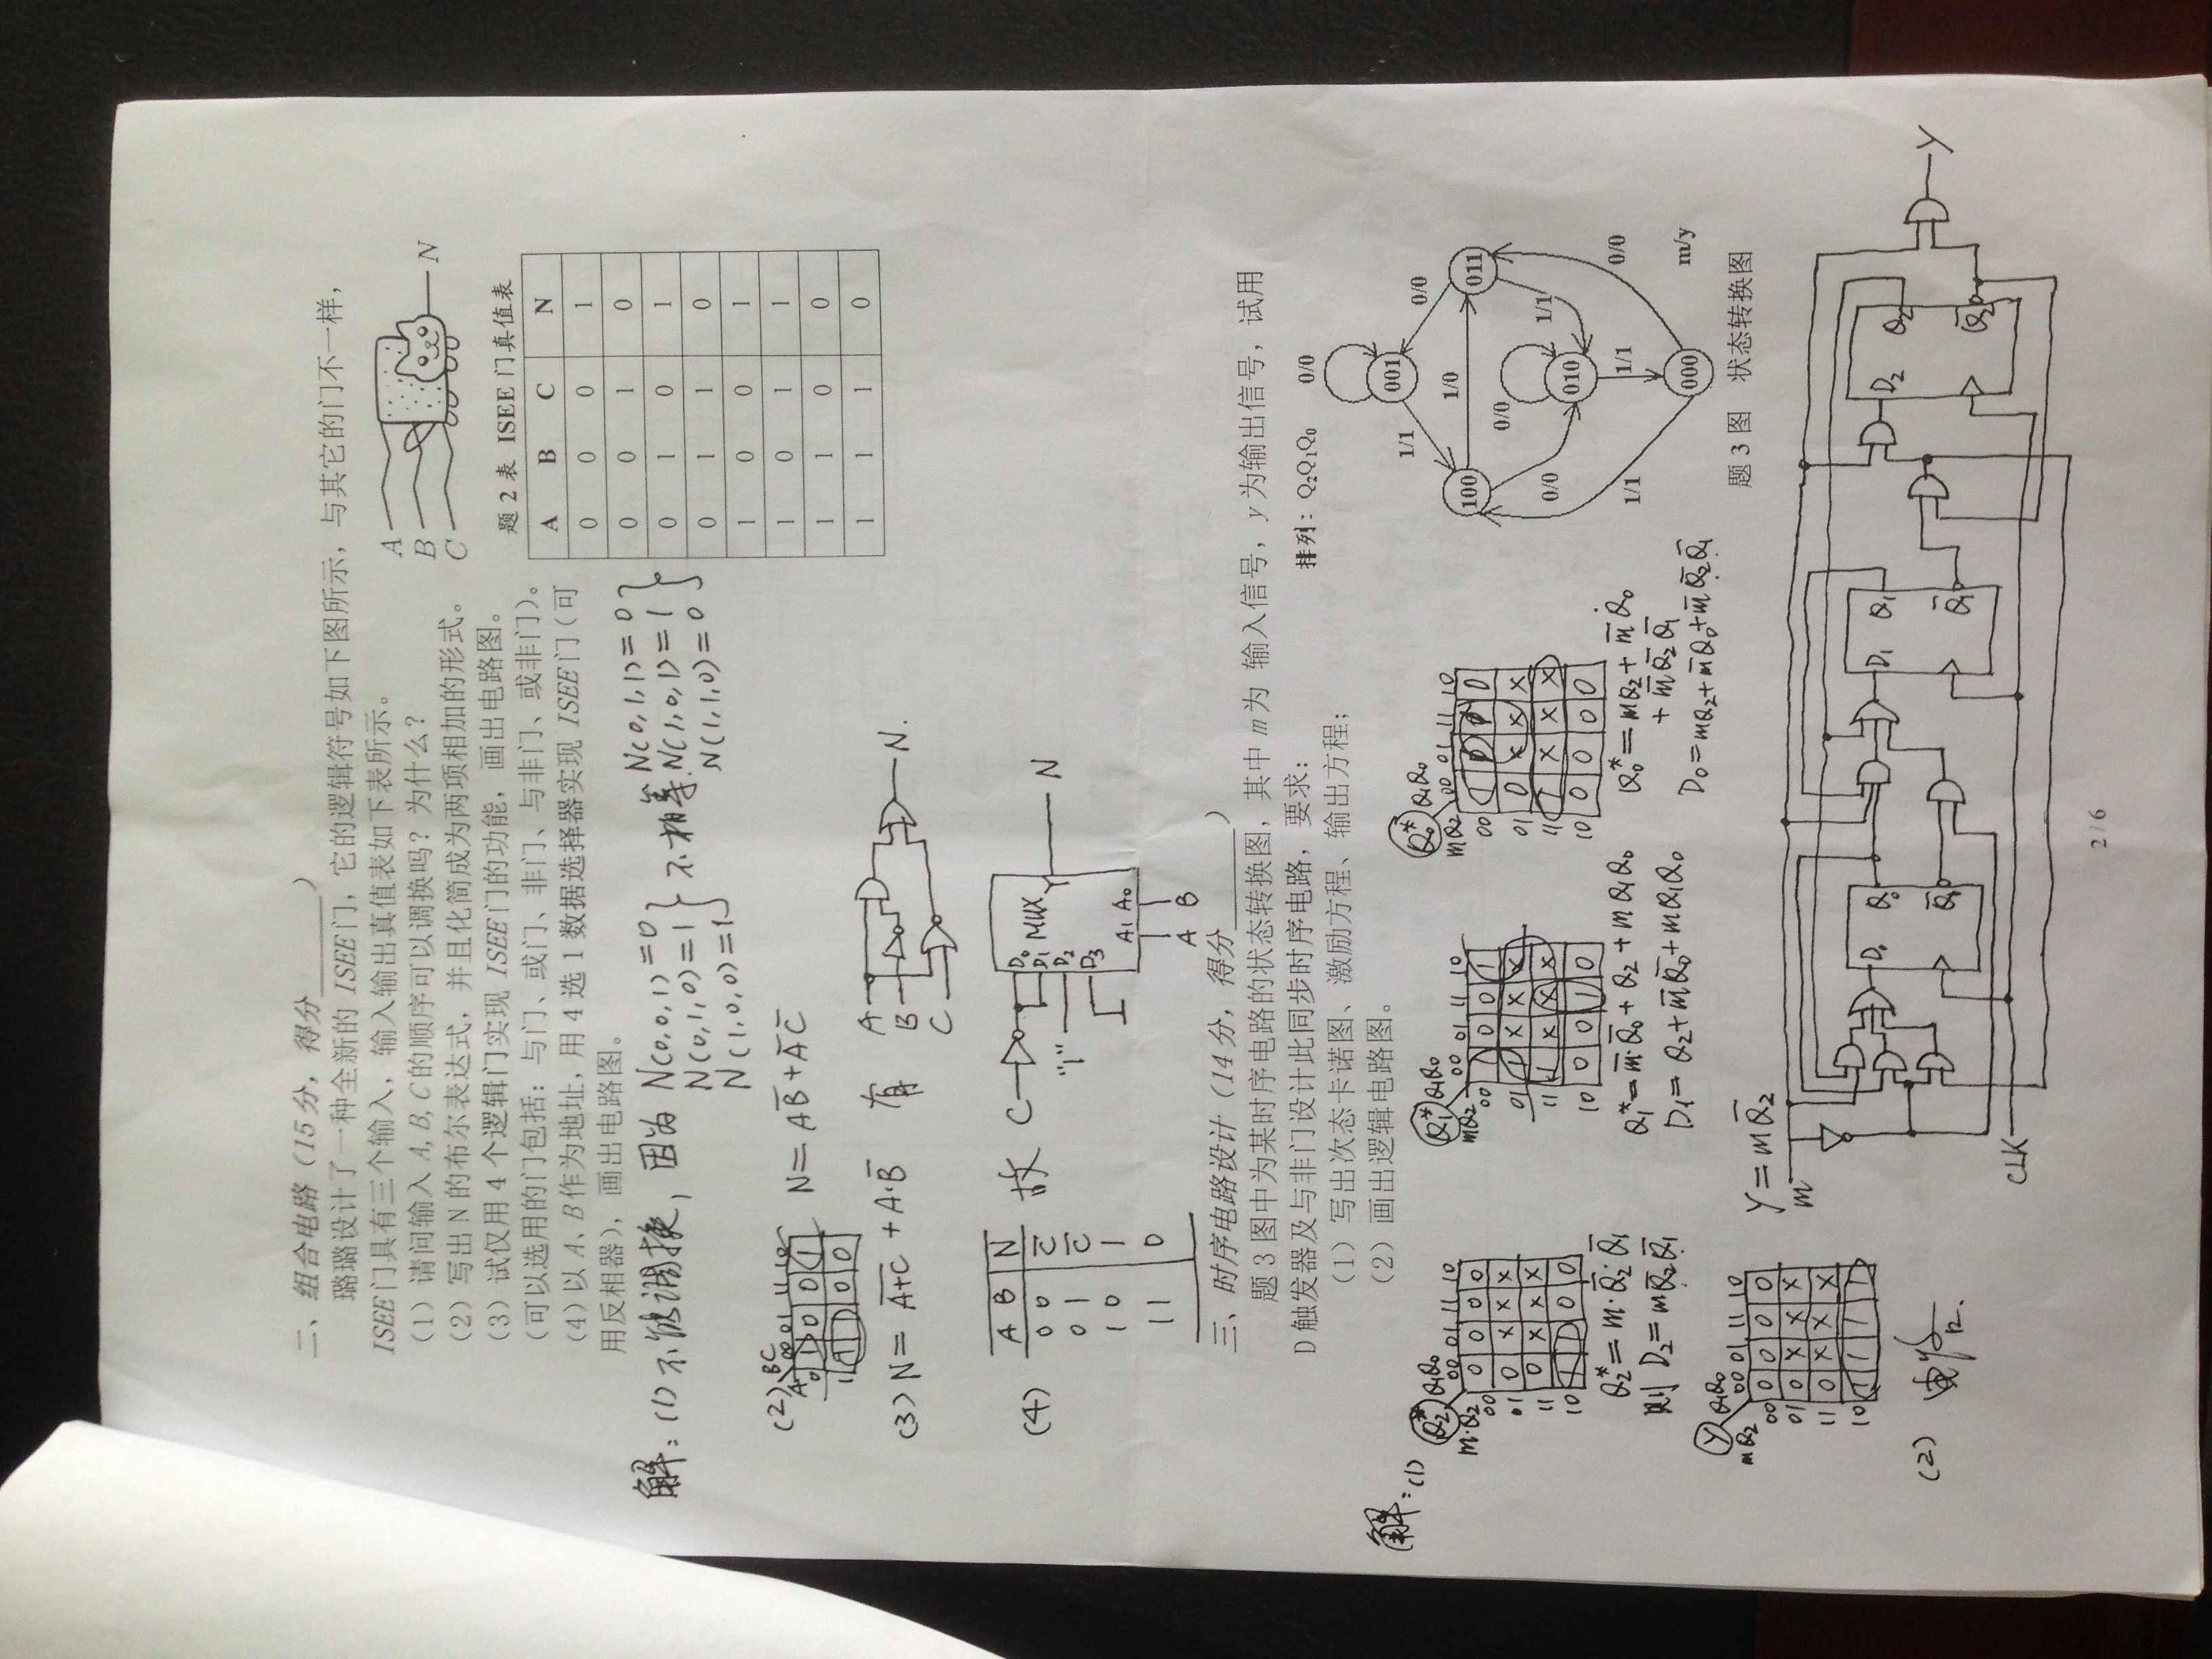 二、组合电路（15分，得分______）
璐璐设计了一种全新的 ISEE门，它的逻辑符号如下图所示，与其它的门不一样，
ISEE门具有三个输入，输入输出真值表如下表所示。
（1）请问输入 A, B, C 的顺序可以调换吗？为什么？
（2）写出 N 的布尔表达式，并且化简成为两项相加的形式。
（3）试仅用 4 个逻辑门实现 ISEE门的功能，画出电路图。
（可以选用的门包括：与门、或门、非门、与非门、或非门）。
（4）以 A、B 作为地址，用 4 选 1 数据选择器实现 ISEE门（可
用反相器），画出电路图。
A
B
C
N
题 2 表 ISEE 门真值表
A B C N
0 0 0 1
0 0 1 0
0 1 0 1
0 1 1 0
1 0 0 1
1 0 1 1
1 1 0 0
1 1 1 0
解：(1) 不能调换，因为 N(0,0,1)=0
N(0,1,0)=1
N(1,0,0)=1
不相等.
N(0,1,1)=0
N(1,0,1)=1
N(1,1,0)=0
(2) A BC 00 01 11 10
0 1 0 0 1
1 1 1 0 0
N=AB̅+A̅C̅
(3) N= A̅+̅C̅ +A·B̅ 有
A
B
C
N.
(4) A B N
0 0 C̅
0 1 C̅
1 0 1
1 1 0
故 C
"1"
D₀
D₁
D₂
D₃
MUX
Y
N
A₁ A₀
A B
三、时序电路设计（14 分，得分______）
题 3 图中为某时序电路的状态转换图，其中 m 为 输入信号，y 为输出信号，试用
D 触发器及与非门设计此同步时序电路，要求：
（1）写出次态卡诺图、激励方程、输出方程；
（2）画出逻辑电路图。
排列：Q₂Q₁Q₀
0/0
001
1/1
0/0
100
1/0
011
0/0
0/0
1/1
010
1/1
1/1
0/0
000
m/y
题 3 图 状态转换图
解：(1)
Q₂* Q₁Q₀
m·Q₂ 00 01 11 10
00 0 0 0 0
01 0 × × ×
11 0 × × ×
10 1 1 0 0
Q₂*=m·Q̅₂·Q̅₁
则 D₂=mQ̅₂Q̅₁
Q₁* Q₁Q₀
mQ₂ 00 01 11 10
00 1 0 0 1
01 1 × × ×
11 1 × × ×
10 0 0 1 0
Q₁*=m̅·Q̅₀+Q₂+mQ₁Q₀
D₁=Q₂+m̅Q̅₀+mQ₁Q₀
Q₀* Q₁Q₀
mQ₂ 00 01 11 10
00 1 0
01 0 × × ×
11 1 × × ×
10 0 0 0 0
Q₀*=mQ₂+m̅Q₀
+m̅Q̅₂Q̅₁
D₀=mQ₂+m̅Q₀+m̅Q̅₂Q̅₁
Y Q₁Q₀
mQ₂ 00 01 11 10
00 0 0 0 0
01 0 × × ×
11 0 × × ×
10 1 1 1 1
Y=mQ̅₂
(2) 电路
m
D₀ Q₀
Q̅₀
D₁ Q₁
Q̅₁
D₂ Q₂
Q̅₂
Y
CLK
2 / 6